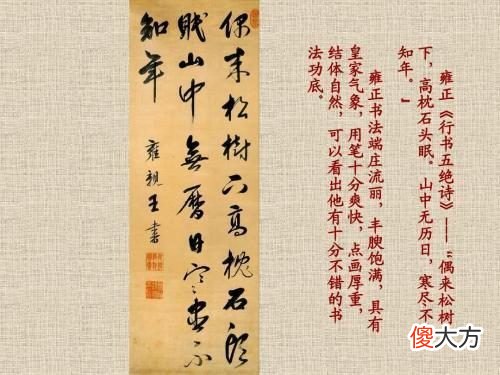 雍正《行书五绝诗》——“偶来松树
下，高枕石头眠。山中无历日，寒尽不
知年。”
雍正书法端庄流丽，丰腴饱满，具有
皇家气象，用笔十分爽快，点画厚重，
结体自然，可以看出他有十分不错的书
法功底。
偶来松樹下高枕石頭
眠山中無曆日寒盡不
知年
雍親王書
傻大方